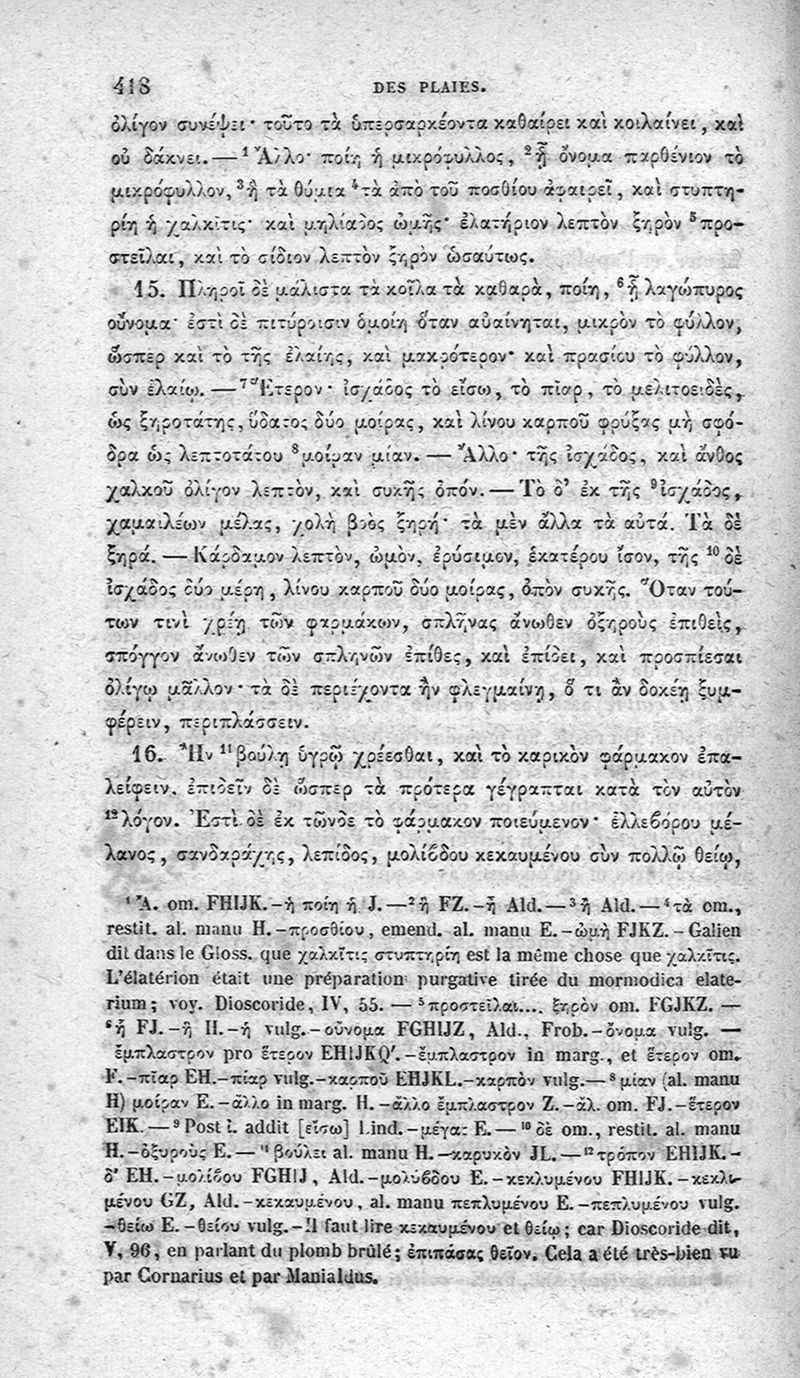 418 DES PLAIES.
ὀλίγον συνέψει· τοῦτο τὰ ὑπερσαρκέοντα καθαίρει καὶ κοιλαίνει, καὶ
οὐ δάκνει. — ¹ Ἄλλο· ποίη ἡ μικρόφυλλος, ² ᾗ ὄνομα παρθένιον τὸ
μικρόφυλλον, ³ ἣ τὰ θύμια ⁴ τὰ ἀπὸ τοῦ ποσθίου ἀφαιρεῖ, καὶ στυπτη-
ρίη ἡ χαλκῖτις· καὶ μηλίαδος ὠμῆς· ἐλατήριον λεπτὸν ξηρὸν ⁵ προ-
στεῖλαι, καὶ τὸ σίδιον λεπτὸν ξηρὸν ὡσαύτως.
15. Πληροῖ δὲ μάλιστα τὰ κοῖλα τὰ καθαρὰ, ποίη, ⁶ ᾗ λαγώπυρος
οὔνομα· ἐστὶ δὲ πιτύροισιν ὁμοίη ὅταν αὐαίνηται, μικρὸν τὸ φύλλον,
ὥσπερ καὶ τὸ τῆς ἐλαίης, καὶ μακρότερον· καὶ πρασίου τὸ φύλλον,
σὺν ἐλαίῳ. — ⁷ Ἕτερον· ἰσχάδος τὸ εἴσω, τὸ πῖαρ, τὸ μελιτοειδὲς,
ὡς ξηροτάτης, ὕδατος δύο μοίρας, καὶ λίνου καρποῦ φρύξας μὴ σφό-
δρα ὡς λεπτοτάτου ⁸ μοῖραν μίαν. — Ἄλλο· τῆς ἰσχάδος, καὶ ἄνθος
χαλκοῦ ὀλίγον λεπτὸν, καὶ συκῆς ὀπόν. — Τὸ δ’ ἐκ τῆς ⁹ ἰσχάδος,
χαμαιλέων μέλας, χολὴ βοὸς ξηρή· τὰ μὲν ἄλλα τὰ αὐτά. Τὰ δὲ
ξηρά. — Κάρδαμον λεπτὸν, ὠμὸν, ἐρύσιμον, ἑκατέρου ἴσον, τῆς ¹⁰ δὲ
ἰσχάδος δύο μέρη, λίνου καρποῦ δύο μοίρας, ὀπὸν συκῆς. Ὅταν τού-
των τινὶ χρέῃ τῶν φαρμάκων, σπλῆνας ἄνωθεν ὀξηροὺς ἐπιθεὶς,
σπόγγον ἄνωθεν τῶν σπληνῶν ἐπίθες, καὶ ἐπίδει, καὶ προσπίεσαι
ὀλίγῳ μᾶλλον· τὰ δὲ περιέχοντα ἢν φλεγμαίνῃ, ὅ τι ἂν δοκέῃ ξυμ-
φέρειν, περιπλάσσειν.
16. Ἢν ¹¹ βούλῃ ὑγρῷ χρέεσθαι, καὶ τὸ καρικὸν φάρμακον ἐπα-
λείφειν, ἐπιδεῖν δὲ ὥσπερ τὰ πρότερα γέγραπται κατὰ τὸν αὐτὸν
¹² λόγον. Ἐστὶ δὲ ἐκ τῶνδε τὸ φάρμακον ποιεύμενον· ἑλλεβόρου μέ-
λανος, σανδαράχης, λεπίδος, μολίβδου κεκαυμένου σὺν πολλῷ θείῳ,
¹ Ἄ. om. FHIJK. - ἡ ποίη ἡ J. — ² ἢ FZ. - ᾖ Ald. — ³ ἢ Ald. — ⁴ τὰ om.,
restit. al. manu H. - προσθίου, emend. al. manu E. - ὠμὴ FJKZ. - Galien
dit dans le Gloss. que χαλκῖτις στυπτηρίη est la même chose que χαλκῖτις.
L’élatérion était une préparation purgative tirée du mormodica elate-
rium; voy. Dioscoride, IV, 55. — ⁵ προστεῖλαι.... ξηρὸν om. FGJKZ. —
⁶ ἡ FJ. - ἢ H. - ἡ vulg. - οὔνομα FGHIJZ, Ald., Frob. - ὄνομα vulg. —
ἔμπλαστρον pro ἕτερον EHIJKQ’. - ἔμπλαστρον in marg., et ἕτερον om.
F. - πῖαρ EH. - πίαρ vulg. - καρποῦ EHJKL. - καρπὸν vulg. — ⁸ μίαν (al. manu
H) μοίραν E. - ἄλλο in marg. H. - ἄλλο ἔμπλαστρον Z. - ἄλ. om. FJ. - ἕτερον
EIK. — ⁹ Post ἰ. addit [εἴσω] Lind. - μέγας E. — ¹⁰ δὲ om., restit. al. manu
H. - ὀξυροὺς E. — ¹¹ βούλει al. manu H. - καρυκὸν JL. — ¹² τρόπον EHIJK. -
δ’ EH. - μολίβου FGHIJ, Ald. - μολύβδου E. - κεκλυμένου FHIJK. - κεκλι-
μένου GZ, Ald. - κεκαυμένου, al. manu πεπλυμένου E. - πεπλυμένου vulg.
- θείω E. - θείου vulg. - Il faut lire κεκαυμένου et θείῳ; car Dioscoride dit,
V, 96, en parlant du plomb brûlé; ἐπιπάσας θεῖον. Cela a été très-bien vu
par Cornarius et par Manialdus.